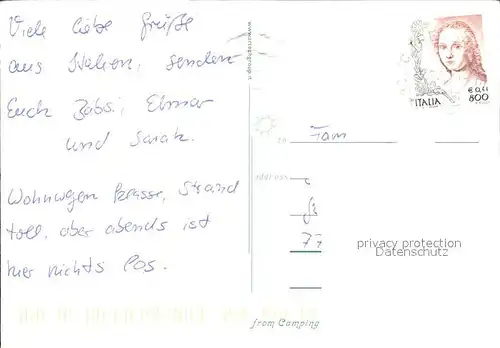 Viele liebe Grüße
aus Italien, senden
Euch Babsi, Elmar
und Sarah.
Wohnwagen klasse, Strand
toll, aber abends ist
hier nichts los.
to Fam
address
77
ITALIA
€ 0,41
800
privacy protection
Datenschutz
from Camping